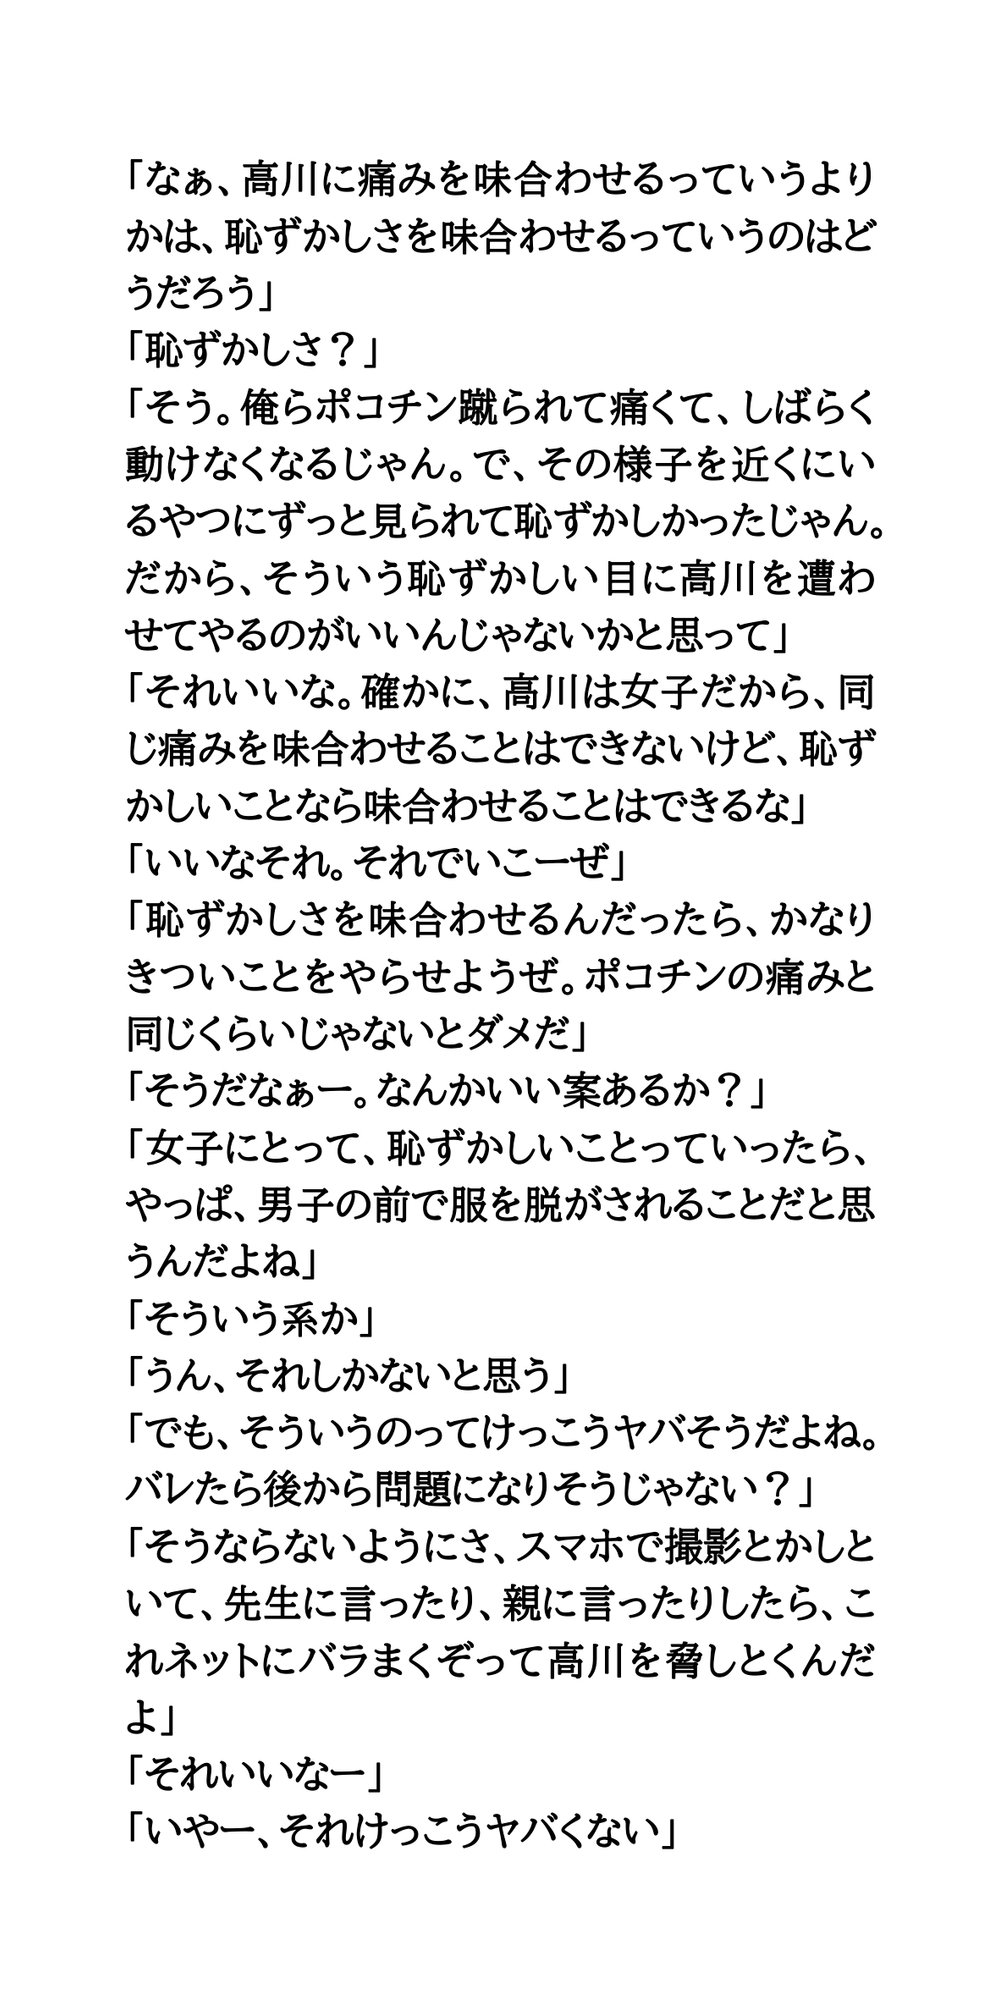 「なぁ、高川に痛みを味合わせるっていうより
かは、恥ずかしさを味合わせるっていうのはど
うだろう」
「恥ずかしさ？」
「そう。俺らポコチン蹴られて痛くて、しばらく
動けなくなるじゃん。で、その様子を近くにい
るやつにずっと見られて恥ずかしかったじゃん。
だから、そういう恥ずかしい目に高川を遭わ
せてやるのがいいんじゃないかと思って」
「それいいな。確かに、高川は女子だから、同
じ痛みを味合わせることはできないけど、恥ず
かしいことなら味合わせることはできるな」
「いいなそれ。それでいこーぜ」
「恥ずかしさを味合わせるんだったら、かなり
きついことをやらせようぜ。ポコチンの痛みと
同じくらいじゃないとダメだ」
「そうだなぁー。なんかいい案あるか？」
「女子にとって、恥ずかしいことっていったら、
やっぱ、男子の前で服を脱がされることだと思
うんだよね」
「そういう系か」
「うん、それしかないと思う」
「でも、そういうのってけっこうヤバそうだよね。
バレたら後から問題になりそうじゃない？」
「そうならないようにさ、スマホで撮影とかしと
いて、先生に言ったり、親に言ったりしたら、こ
れネットにバラまくぞって高川を脅しとくんだ
よ」
「それいいなー」
「いやー、それけっこうヤバくない」